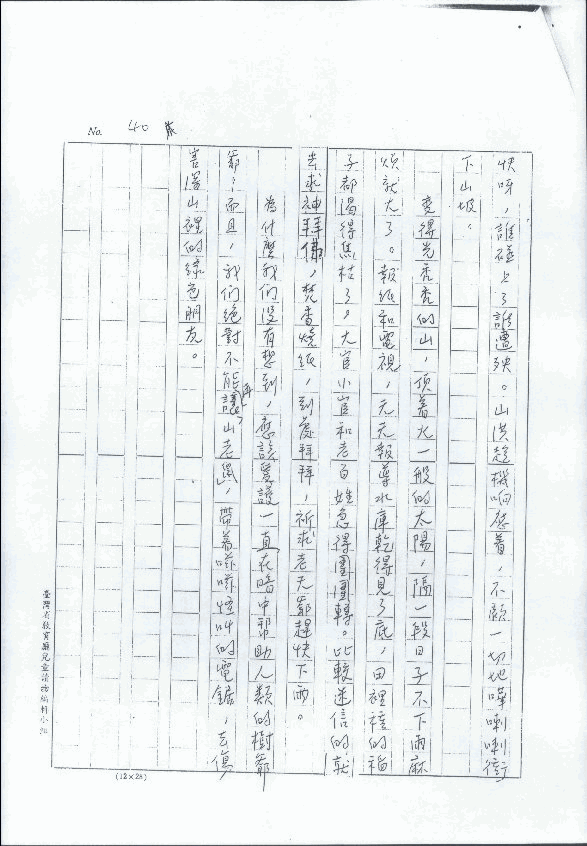 No. 40
快呀,誰碰上了誰遭殃。山洪趁機响應着,不顧一切地嘩喇喇衝
下山坡。
變得光禿禿的山,頂着火一般的太陽,隔一段日子不下雨麻
煩就大了。報紙和電視,天天報導水庫乾得見了底,田裡種的稻
子都渴得焦枯了。大官小官和老百姓急得團團轉。比較迷信的就
去求神拜佛,焚香燒紙,到處拜拜,祈求老天爺趕快下雨。
為什麼我們沒有想到,應該愛護一直在暗中幫助人類的樹爺
爺;而且,我們絕對不能再讓「山老鼠」帶着嗞嗞怪叫的電鋸,去傷
害深山裡的綠色朋友。
臺灣省教育廳兒童讀物編輯小組
(12×25)